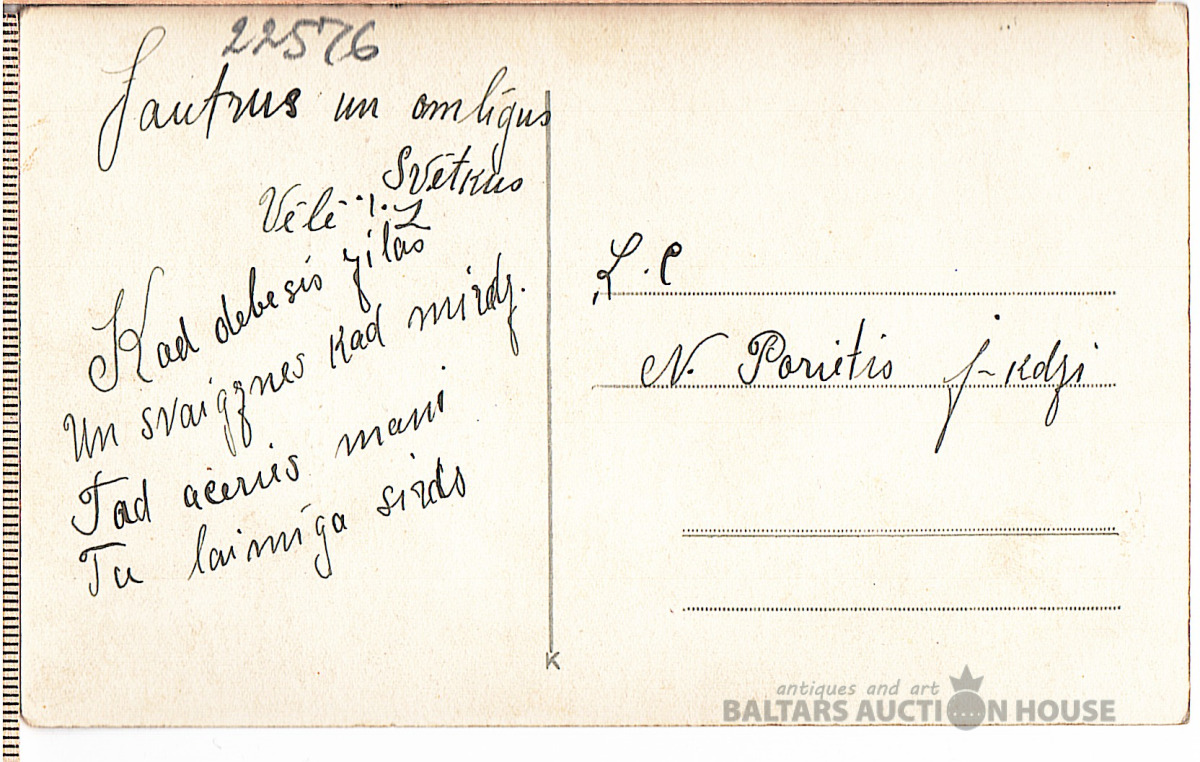 22576
Jautrus un omligus
Svētkus
Vēlē
Kad debesis zilas
Un svaigznes kad mirdz.
Tad aceries mani
Tu laimīga sirds
L. C
N. Porietis j-kdzi
K
antiques and art
BALTARS AUCTION HOUSE